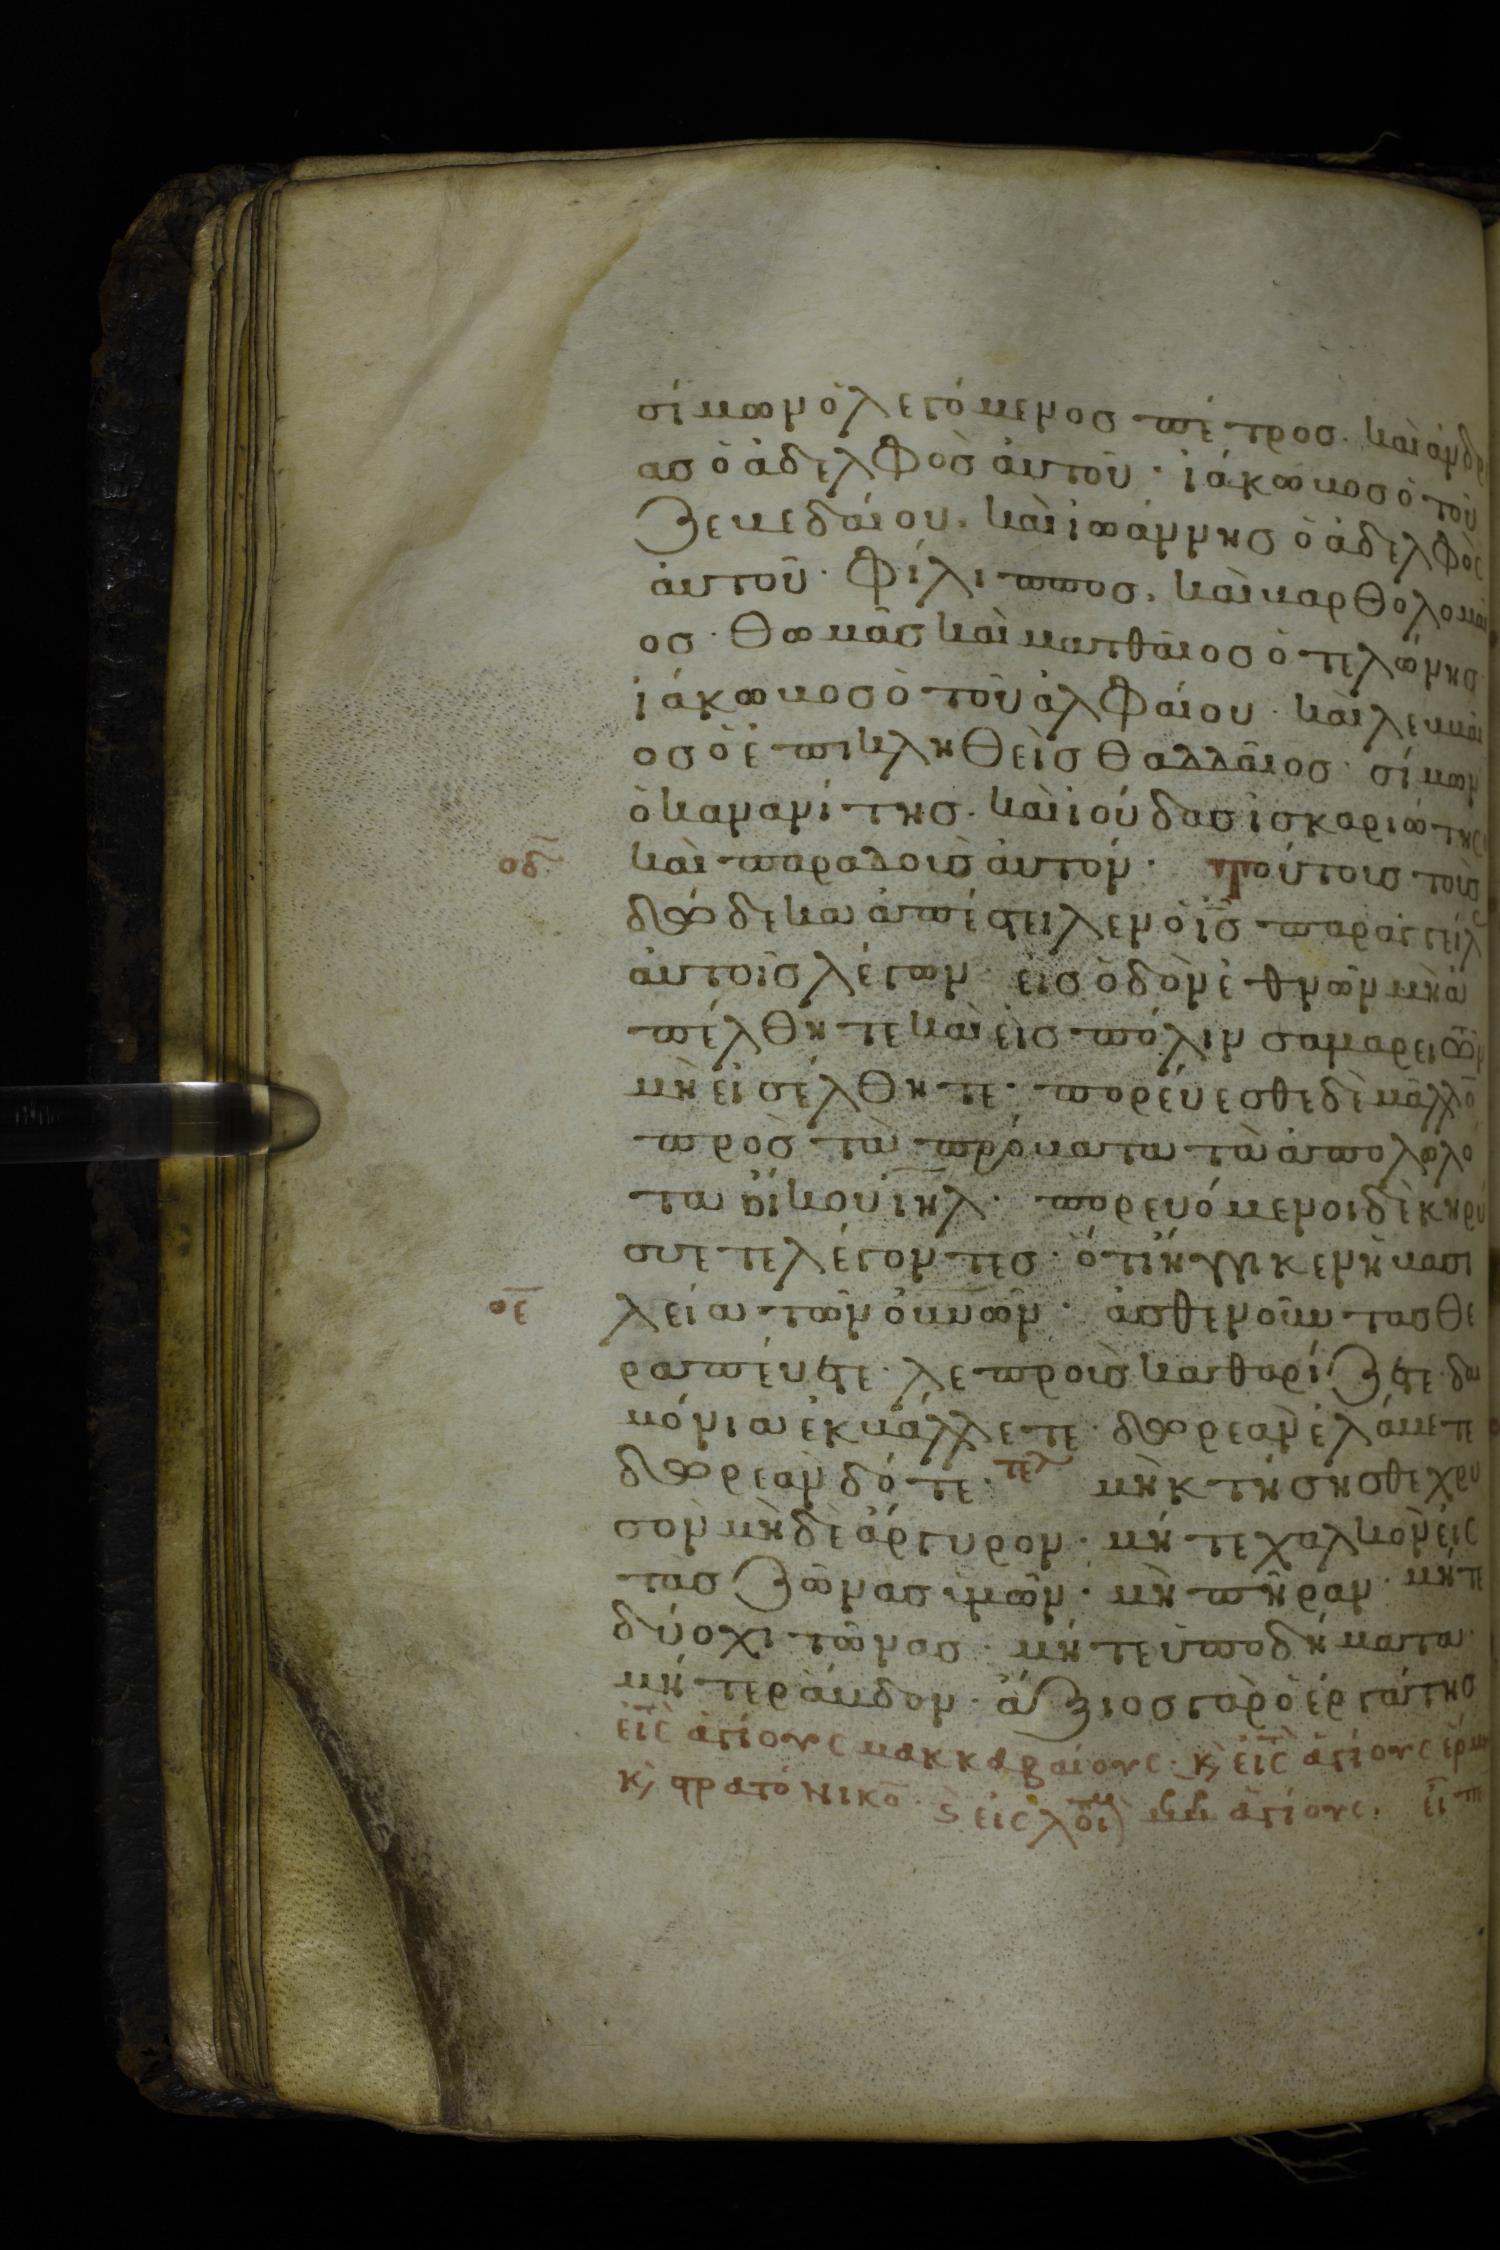 σίμων ὁ λεγόμενος πέτρος· καὶ ἀνδρέ
ας ὁ ἀδελφὸς ἀυτοῦ· ἰάκωβος ὁ τοῦ
ζεβεδαίου, καὶ ἰωάννης ὁ ἀδελφὸς
ἀυτοῦ· φίλιππος, καὶ βαρθολομαῖ
ος· θωμᾶς καὶ ματθαῖος ὁ τελώνης
ἰάκωβος ὁ τοῦ ἀλφαίου· καὶ λεββαῖ
ος ὁ ἐπικληθεὶς θαδδαῖος· σίμων
ὁ κανανίτης· καὶ ἰούδας ἰσκαριώτης ὁ
οδ καὶ παραδοὺς ἀυτόν· Τούτους τοὺς
δώδεκα ἀπέστειλεν ὁ ι̅ς̅ παραγγείλ
ἀυτοῖς λέγων· εἰς ὁδὸν ἐθνῶν μὴ ἀ
πέλθητε καὶ εἰς πόλιν σαμαρειτῶν
μὴ εἰσέλθητε· πορεύεσθε δὲ μᾶλλο
πρὸς τὰ πρόβατα τὰ ἀπολωλό
τα ὄικου ι̅η̅λ̅· πορευόμενοι δὲ κηρύ
σσετε λέγοντες· ὅτι ἤγγικεν ἡ βασι
οε λεία τῶν ὀυ̅ν̅ῶν· ἀσθενοῦντας θε
ραπέυετε· λεπροὺς καθαρίζετε· δαι
μόνια ἐκβάλλετε· δωρεὰν ἐλάβετε
δωρεὰν δότε· τελ μὴ κτήσησθε χρυ
σὸν μὴδὲ ἄργυρον· μήτε χαλκὸν εἰς
τὰς ζώνας ὑμῶν· μὴ πήραν· μήτε
δύο χιτῶνας· μήτε ὑποδήματα·
μήτε ράβδον· ἄξιος γὰρ ὁ ἐργάτης
εἰς ἁγίους μακκαβαίους· κ̀ εἰς ἁγίους ἑρμ
κ̀ στρατόνικο